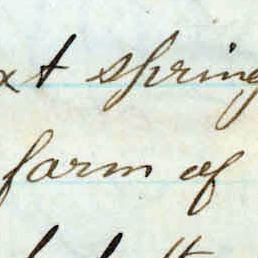 xt spring
farm of